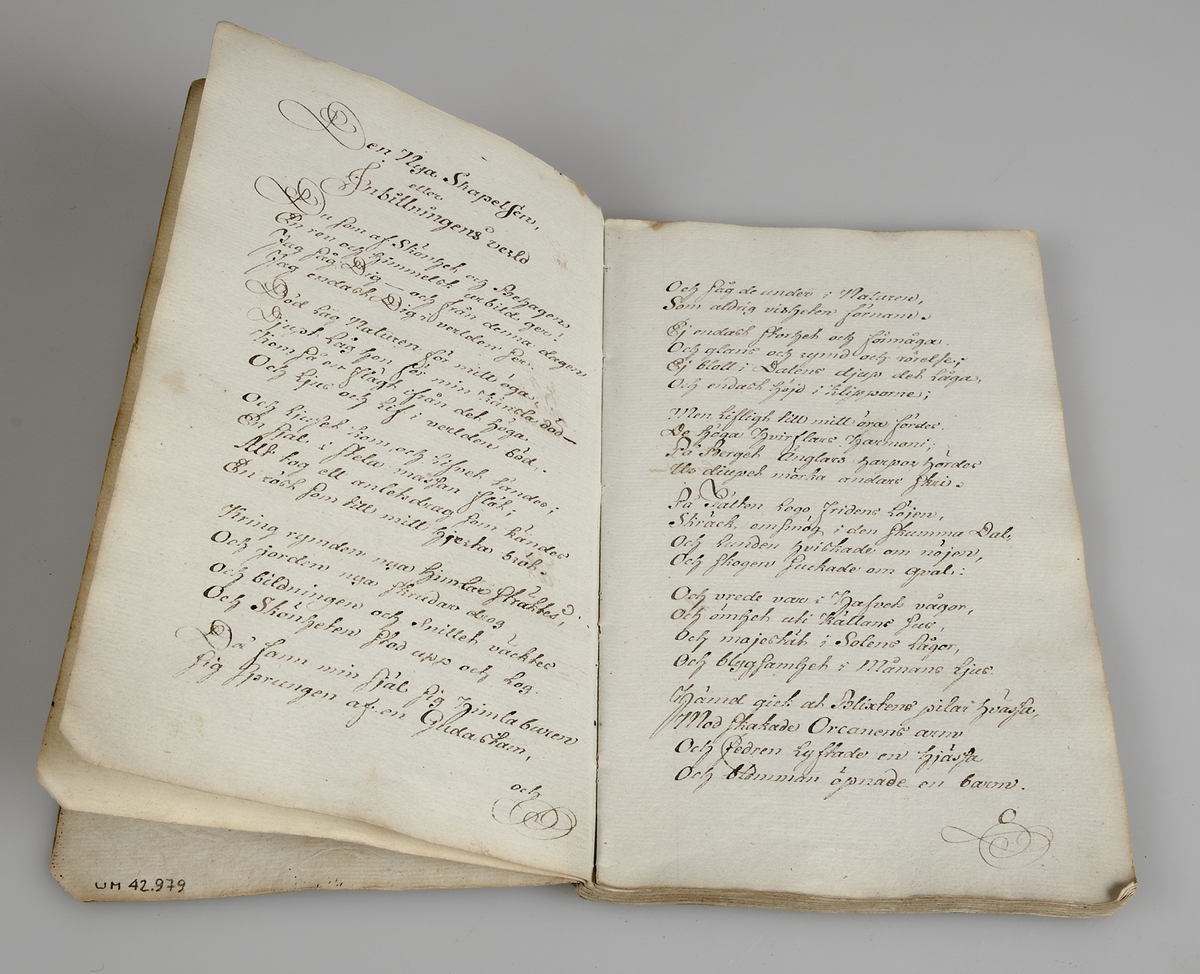 Den Nya Skapelsen,
eller
Inbillningens verld
Du som af Skönhet och Behagen
En ren och himmelsk urbild ger!
Jag såg Dig – och från denna dagen
Jag endast Dig i verlden ser.
Död låg Naturen för mitt öga
Djupt låg hon för min känsla död –
Kom så en flägt ifrån det höga
Och Ljus och Lif i verlden böd.
Och Ljuset kom, och Lifvet tändes;
En själ i stela massan flöt;
Allt tog ett anletsdrag som kändes
En röst som till mitt hjerta bröt.
Kring rymden nya himlar sträktes,
Och jorden nya skrudar drog
Och bildningen och Snillet väcktes
Och Skönheten stod upp och log.
Då fann min själ sig himlaburen
Sig sprungen af en Gudastam,
och
Och såg de under i Naturen,
Som aldrig visheten förnam.
Ej endast storhet och förmåga
Och glans och rymd och rörelse;
Ej blott i Dalens djup det Låga,
Och endast höjd i klipporne;
Men Lifligt till mitt öra fördes
De höga Hvirflars Harmoni;
På Berget Änglars harpor hördes
Ur djupet mörka andars skri.
På Fälten logo Fridens Löjen,
Skräck omsmög i den skumma Dal,
Och Lunden hviskade om nöjen,
Och skogen suckade om qval:
Och vrede var i Hafvets vågor,
Och ömhet uti Källans sus,
Och majestät i Solens Lågor,
Och blygsamhet i Månans Ljus.
Hämd gick at Blixtens pilar hvässa,
Mod skakade Orcanens arm
Och Cedren Lyftade en hjässa
Och blomman öpnade en barm.
UM 42.979